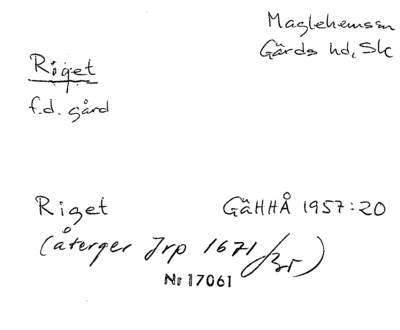 Maglehemssn
Gärds hd, Sk
Riget
f.d. gård
Riget GäHHÅ 1957:20
(återger Jrp 1671/Br)
Nr 17061